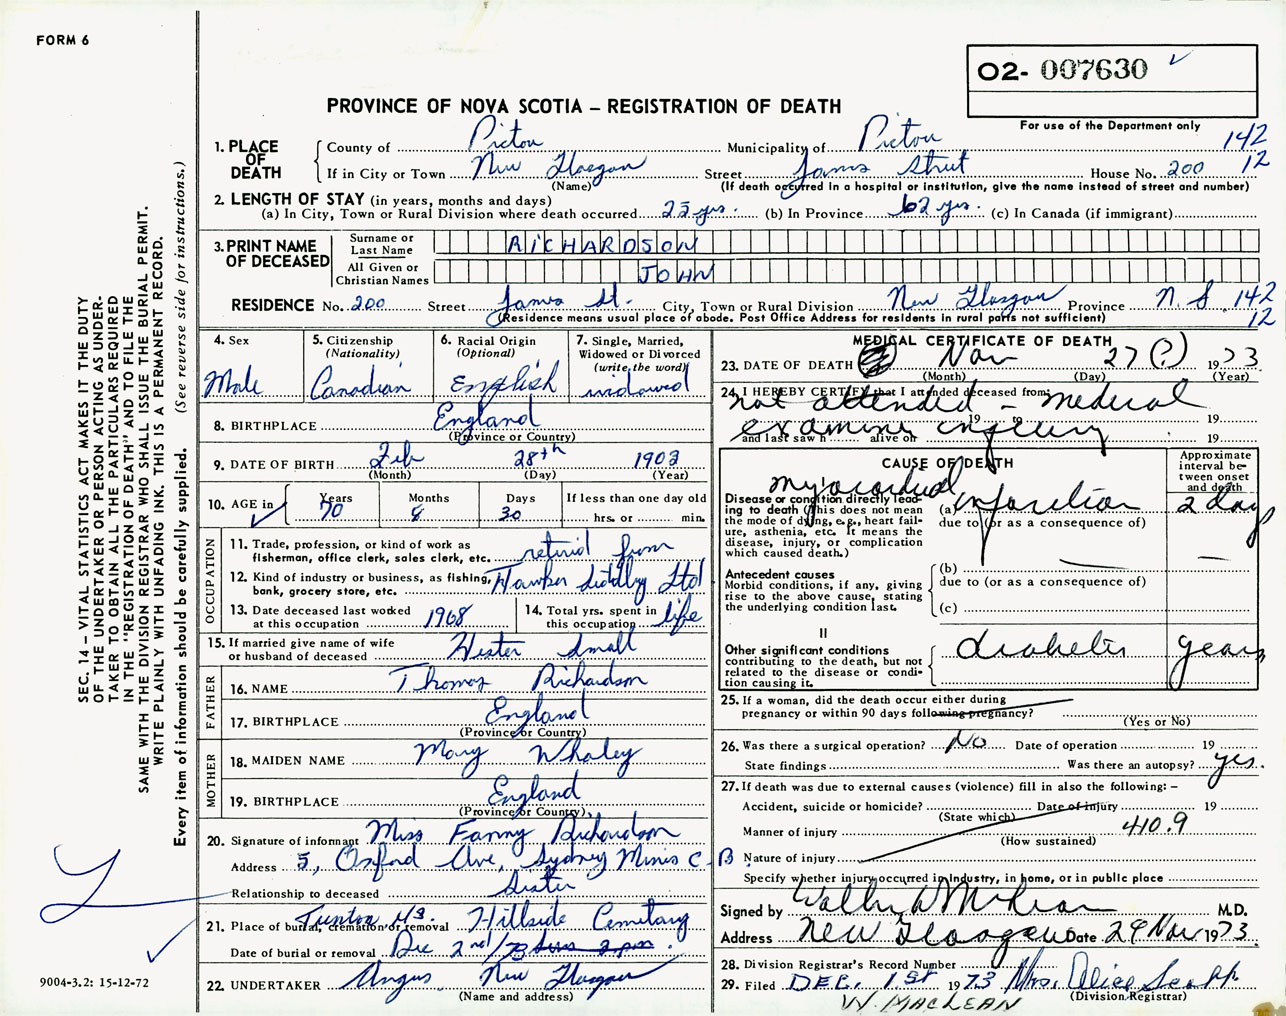 FORM 6
O2- 007630
PROVINCE OF NOVA SCOTIA – REGISTRATION OF DEATH
For use of the Department only
142
12
1. PLACE OF DEATH
County of Pictou Municipality of Pictou
If in City or Town New Glasgow Street James Street House No. 200
(Name) (If death occurred in a hospital or institution, give the name instead of street and number)
2. LENGTH OF STAY (in years, months and days)
(a) In City, Town or Rural Division where death occurred 25 yrs. (b) In Province 62 yrs. (c) In Canada (if immigrant)
3. PRINT NAME OF DECEASED
Surname or Last Name RICHARDSON
All Given or Christian Names JOHN
RESIDENCE No. 200 Street James St. City, Town or Rural Division New Glasgow Province N.S. 142
(Residence means usual place of abode. Post Office Address for residents in rural parts not sufficient) 12
4. Sex
Male
5. Citizenship
(Nationality)
Canadian
6. Racial Origin
(Optional)
English
7. Single, Married, Widowed or Divorced
(write the word)
widowed
8. BIRTHPLACE England
(Province or Country)
9. DATE OF BIRTH Feb 28th 1903
(Month) (Day) (Year)
10. AGE in Years Months Days If less than one day old
70 8 30 hrs. or min.
OCCUPATION
11. Trade, profession, or kind of work as fisherman, office clerk, sales clerk, etc. retired from
12. Kind of industry or business, as fishing, bank, grocery store, etc. Hawker Siddley Ltd
13. Date deceased last worked at this occupation 1968
14. Total yrs. spent in this occupation life
15. If married give name of wife or husband of deceased Hester Small
FATHER
16. NAME Thomas Richardson
17. BIRTHPLACE England
(Province or Country)
MOTHER
18. MAIDEN NAME Mary Whaley
19. BIRTHPLACE England
(Province or Country)
20. Signature of informant Miss Fanny Richardson
Address 5, Oxford Ave, Sydney Mines C-B
Relationship to deceased Sister
21. Place of burial, cremation or removal Trenton N.S. Hillside Cemetary
Date of burial or removal Dec 2nd/73
22. UNDERTAKER Angus New Glasgow
(Name and address)
MEDICAL CERTIFICATE OF DEATH
23. DATE OF DEATH Nov 27 (?) 1973
(Month) (Day) (Year)
24. I HEREBY CERTIFY that I attended deceased from
not attended - medical
19 to 19
and last saw h alive on 19
examiner inquiry
CAUSE OF DEATH
Approximate interval between onset and death
Disease or condition directly leading to death (This does not mean the mode of dying, e.g., heart failure, asthenia, etc. It means the disease, injury, or complication which caused death.)
(a) myocardial infarction 2 days
due to (or as a consequence of)
Antecedent causes
Morbid conditions, if any, giving rise to the above cause, stating the underlying condition last.
(b)
due to (or as a consequence of)
(c)
II
Other significant conditions contributing to the death, but not related to the disease or condition causing it.
diabetes years
25. If a woman, did the death occur either during pregnancy or within 90 days following pregnancy?
(Yes or No)
26. Was there a surgical operation? No Date of operation 19
State findings Was there an autopsy? yes.
27. If death was due to external causes (violence) fill in also the following: –
Accident, suicide or homicide? Date of injury 19
(State which)
Manner of injury 410.9
(How sustained)
Nature of injury
Specify whether injury occurred in industry, in home, or in public place
Signed by M.D.
Address New Glasgow Date 29 Nov 1973
28. Division Registrar's Record Number
29. Filed DEC. 1st 1973 Mrs. Alice
(Division Registrar)
W. MACLEAN
SEC. 14 – VITAL STATISTICS ACT MAKES IT THE DUTY
OF THE UNDERTAKER OR PERSON ACTING AS UNDER-
TAKER TO OBTAIN ALL THE PARTICULARS REQUIRED
IN THE "REGISTRATION OF DEATH" AND TO FILE THE
SAME WITH THE DIVISION REGISTRAR WHO SHALL ISSUE THE BURIAL PERMIT.
WRITE PLAINLY WITH UNFADING INK. THIS IS A PERMANENT RECORD.
Every item of information should be carefully supplied. (See reverse side for instructions.)
9004-3.2: 15-12-72